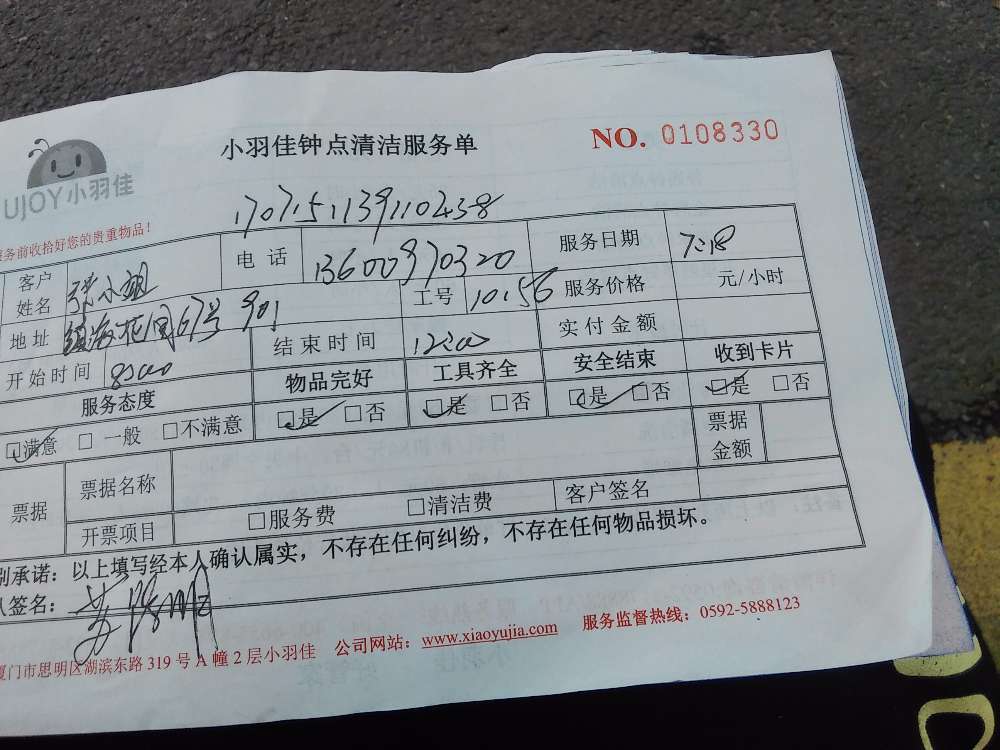 小羽佳钟点清洁服务单 NO. 0108330
UJOY小羽佳
170715113910438
服务前收拾好您的贵重物品！
客户姓名 张小姐 电话 13600970320 服务日期 7.18
地址 镇海花园67号901 工号 10156 服务价格 元/小时
开始时间 8:00 结束时间 12:00 实付金额
服务态度 物品完好 工具齐全 安全结束 收到卡片
☑满意 □一般 □不满意 ☑是 □否 ☑是 □否 ☑是 □否 ☑是 □否
票据 票据名称 票据金额
开票项目 □服务费 □清洁费 客户签名
别承诺：以上填写经本人确认属实，不存在任何纠纷，不存在任何物品损坏。
人签名：
厦门市思明区湖滨东路319号A幢2层小羽佳 公司网站：www.xiaoyujia.com 服务监督热线：0592-5888123